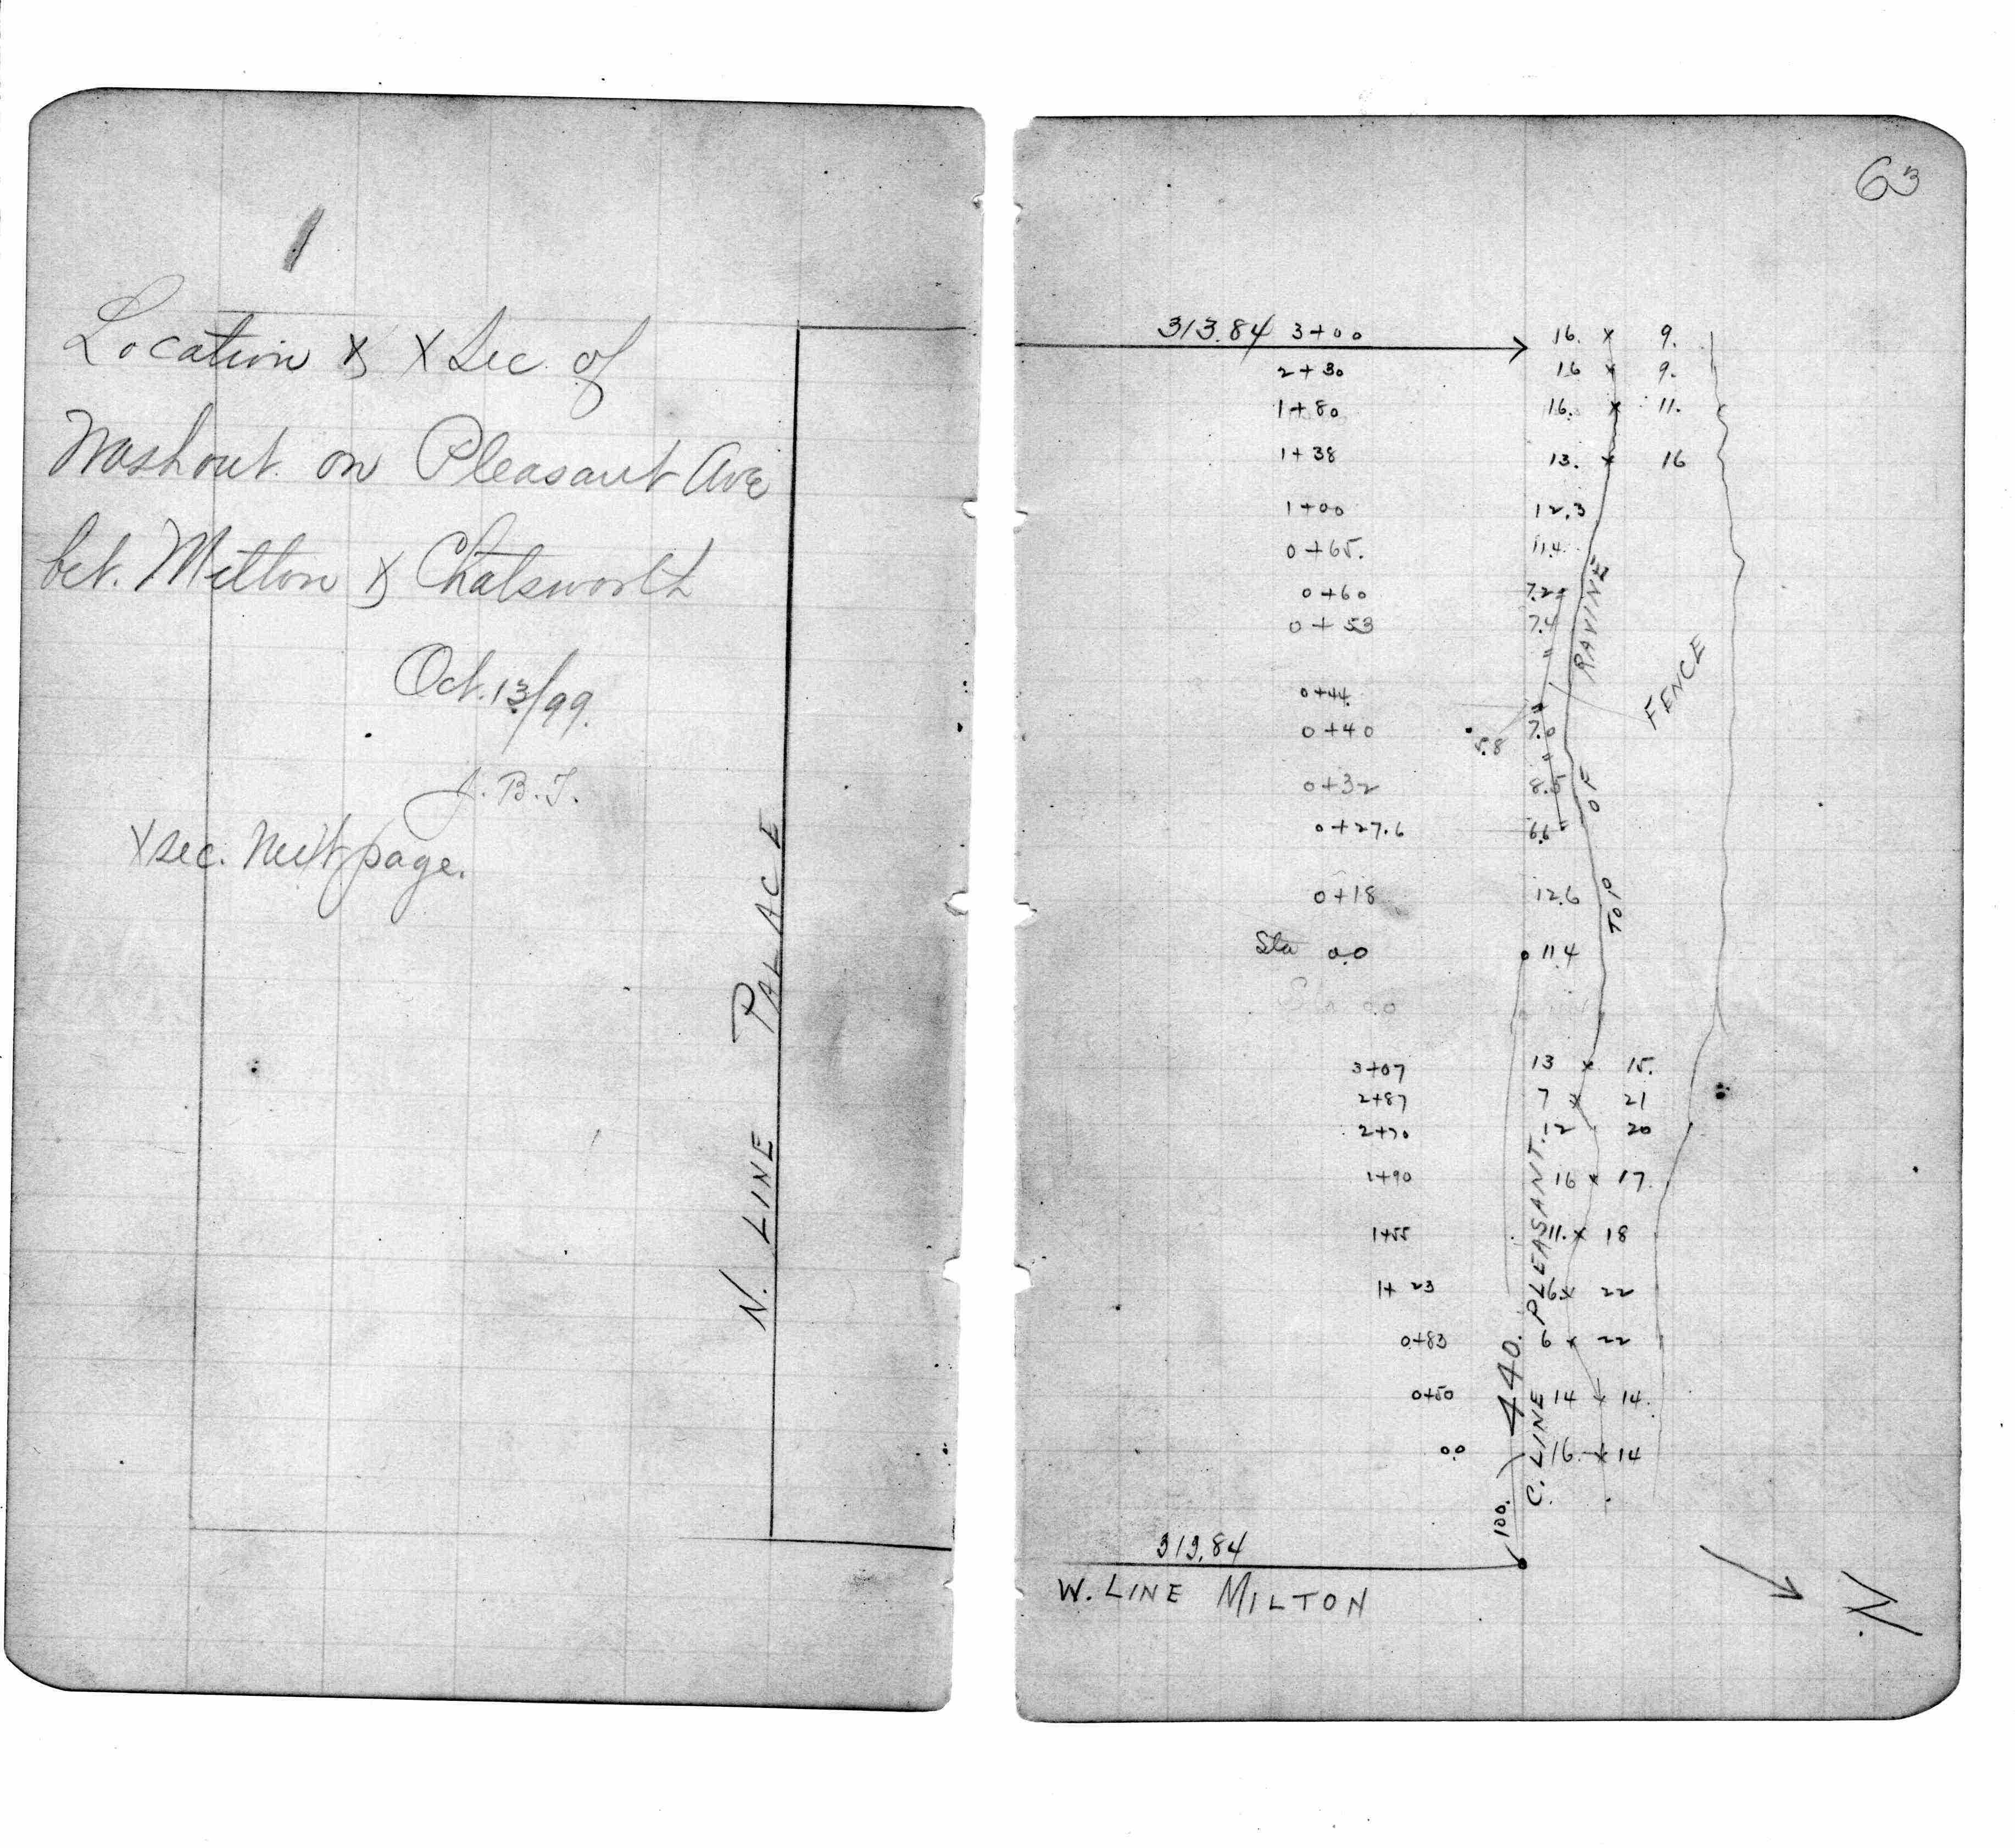 1
Location & X Sec. of
Washout on Pleasant Ave
bet. Milton & Chatsworth
Oct. 13/99.
J. B. I.
X sec. Next page.
N. LINE PALACE
63
313.84 3+00 16. x 9.
2+30 16 x 9.
1+80 16. x 11.
1+38 13. x 16
1+00 12.3
0+65. 11.4
0+60 7.2
0+53 7.4
0+44
0+40 5.8 7.0
0+32 8.5
0+27.6 6.6
0+18 12.6
Sta 0.0 11.4
Sta 0.0
TOP OF RAVINE
FENCE
3+07 13 x 15.
2+87 7 x 21
2+70 12 20
1+90 16 x 17
1+55 11. x 18
1+23 6 x 22
0+83 6 x 22
0+50 14 x 14.
0.0 16. x 14
100. 440.
C. LINE PLEASANT.
313.84
W. LINE MILTON
N.